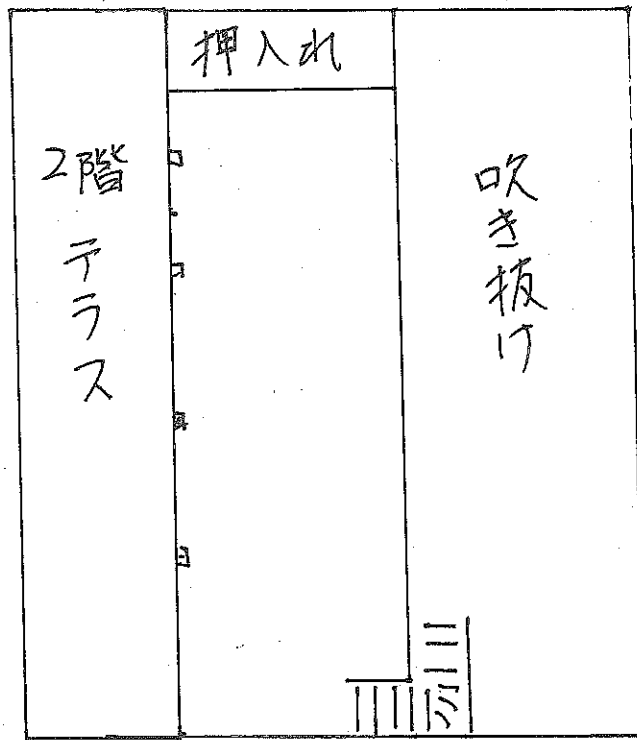 押入れ
2階
テラス
吹き抜け